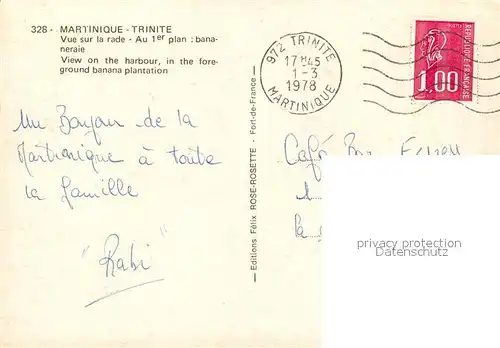 328 - MARTINIQUE - TRINITE
Vue sur la rade - Au 1er plan : bana-
neraie
View on the harbour, in the fore-
ground banana plantation
972 TRINITE
17 H45
1-3
1978
MARTINIQUE
POSTES
1,00
REPUBLIQUE FRANCAISE
Un Bonjour de la
Martinique à toute
la famille
"Rabi"
— Editions Félix ROSE-ROSETTE - Fort-de-France —
Café Bar
la
privacy protection
Datenschutz